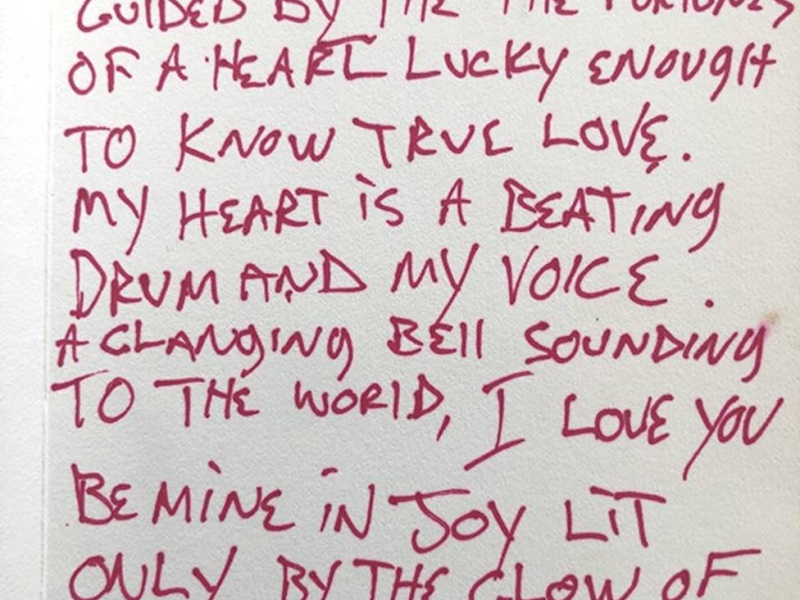 GUIDED BY THE THE FORTUNES
OF A HEART LUCKY ENOUGH
TO KNOW TRUE LOVE.
MY HEART iS A BEATiNg
DRUM AND MY VOICE.
A CLANgiNg BEll SOUNDiNg
TO THE WORLD, I LOVE YOU
BE MiNE iN JOY LiT
ONLY BY THE GLOW OF